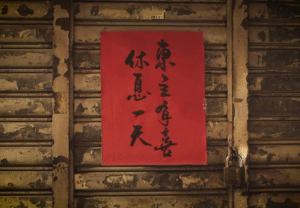 東主有喜
休息一天